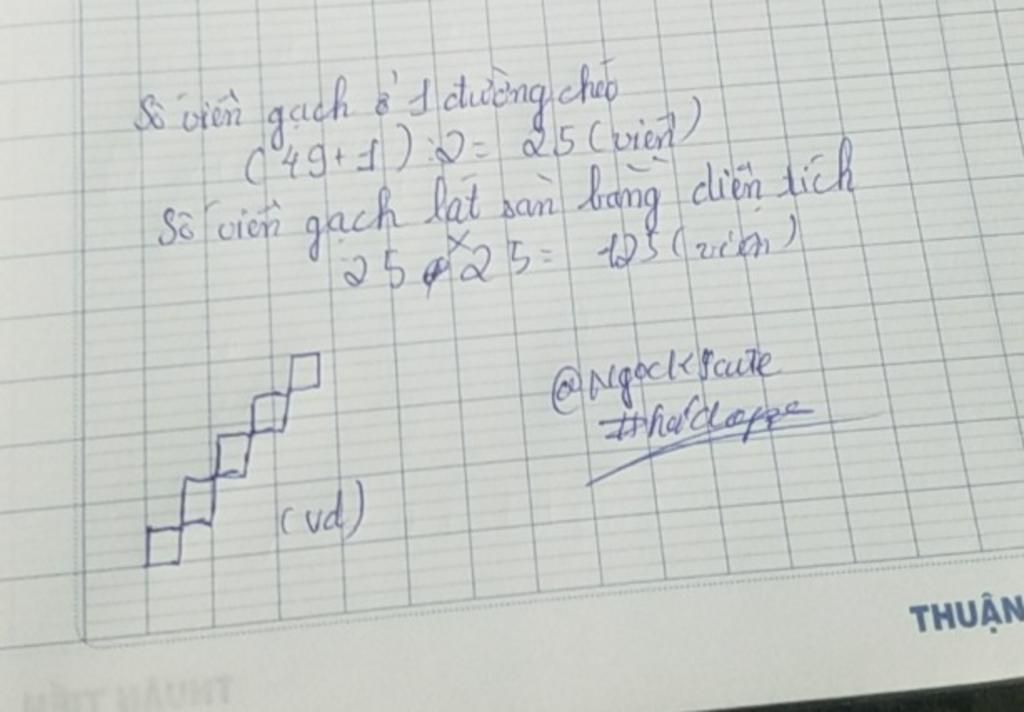 Số viên gạch ở 1 đường chéo
(49+1):2= 25 (viên)
Số viên gạch lát sàn bằng diện tích
25 x 25 = 125 (viên)
@Ngock9cute
(vd)
THUẬN